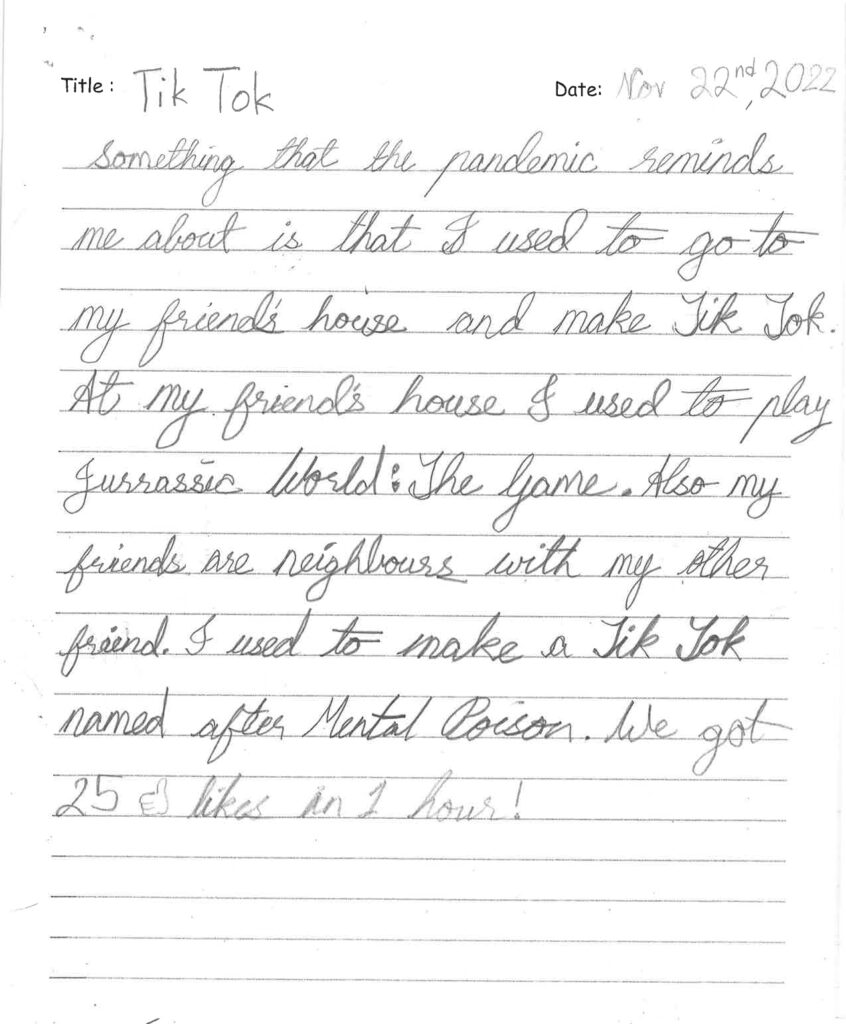 Title: Tik Tok Date: Nov 22nd, 2022
Something that the pandemic reminds
me about is that I used to go to
my friend's house and make Tik Tok.
At my friend's house I used to play
Jurrassic World: The Game. Also my
friends are neighbours with my other
friend. I used to make a Tik Tok
named after Mental Poison. We got
25 👍 likes in 1 hour!